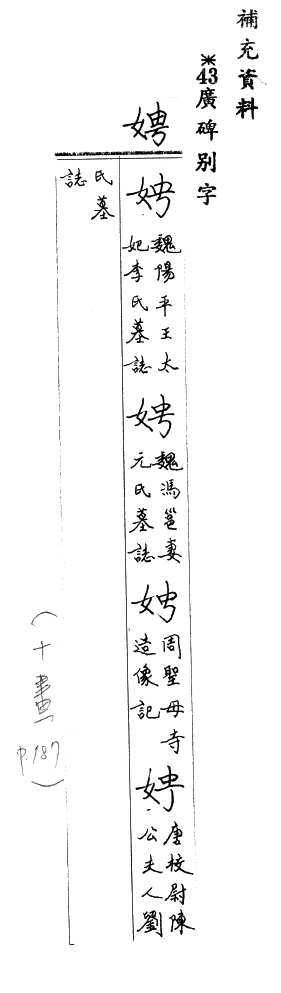 補充資料
※43廣碑別字
娉
娉 魏陽平王太妃李氏墓誌
娉 魏馮邕妻元氏墓誌
娉 周聖母寺造像記
娉 唐校尉陳公夫人劉
氏墓誌
(十畫 p.187)